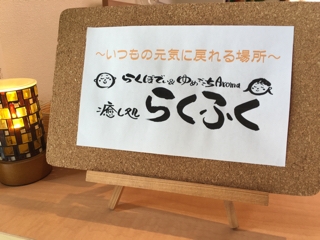 ～いつもの元気に戻れる場所～
らくぼでぃ ゆめごこちAroma
癒し処 らくふく